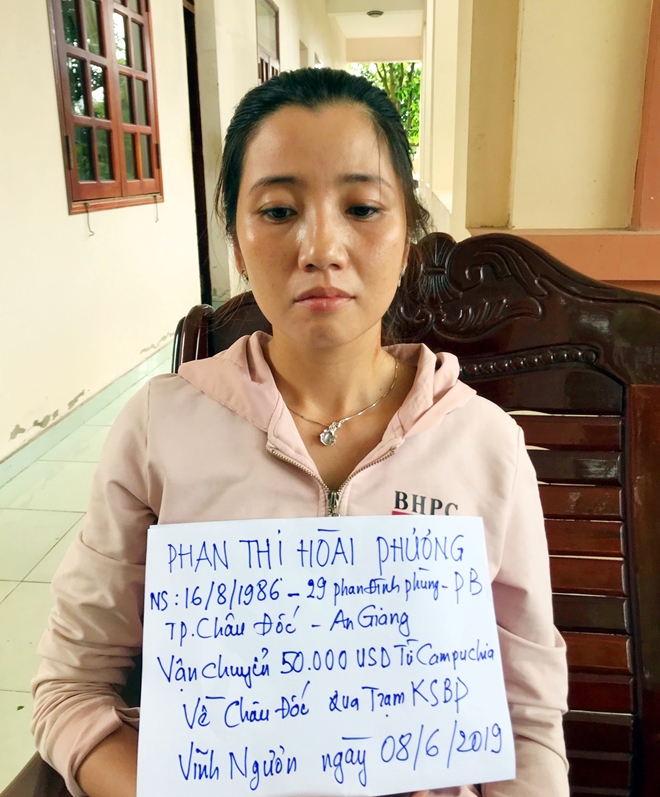 BHPC
PHAN THỊ HOÀI PHƯƠNG
NS: 16/8/1986 - 29 phan Đình phùng - PB
TP. Châu Đốc - An Giang
Vận chuyển 50.000 USD Từ Campuchia
Về Châu Đốc qua Trạm KSBP
Vĩnh Nguơn ngày 08/6/2019